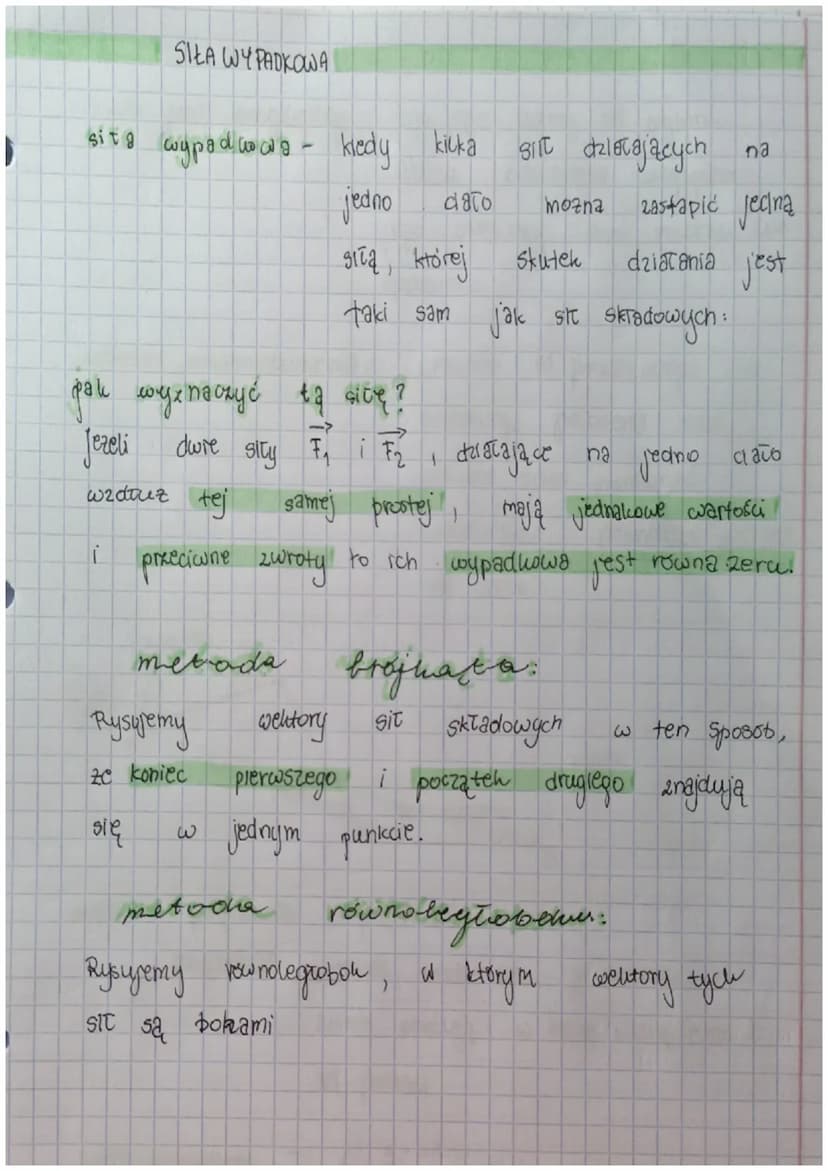 SIŁA WYPADKOWA
siła wypadkowa - kiedy kilka sił działających na
jedno ciało można zastąpić jedną
siłą, której skutek działania jest
taki sam jak sił składowych:
jak wyznaczyć tą siłę?
Jeżeli dwie siły F₁ i F₂, działające na jedno ciało
wzdłuż tej samej prostej, mają jednakowe wartości
i przeciwne zwroty to ich wypadkowa jest równa zeru.
metoda trójkąta:
Rysujemy wektory sił składowych w ten sposób,
że koniec pierwszego i początek drugiego znajdują
się w jednym punkcie.
metoda równoległoboku:
Rysujemy równoległobok, w którym wektory tych
sił są bokami